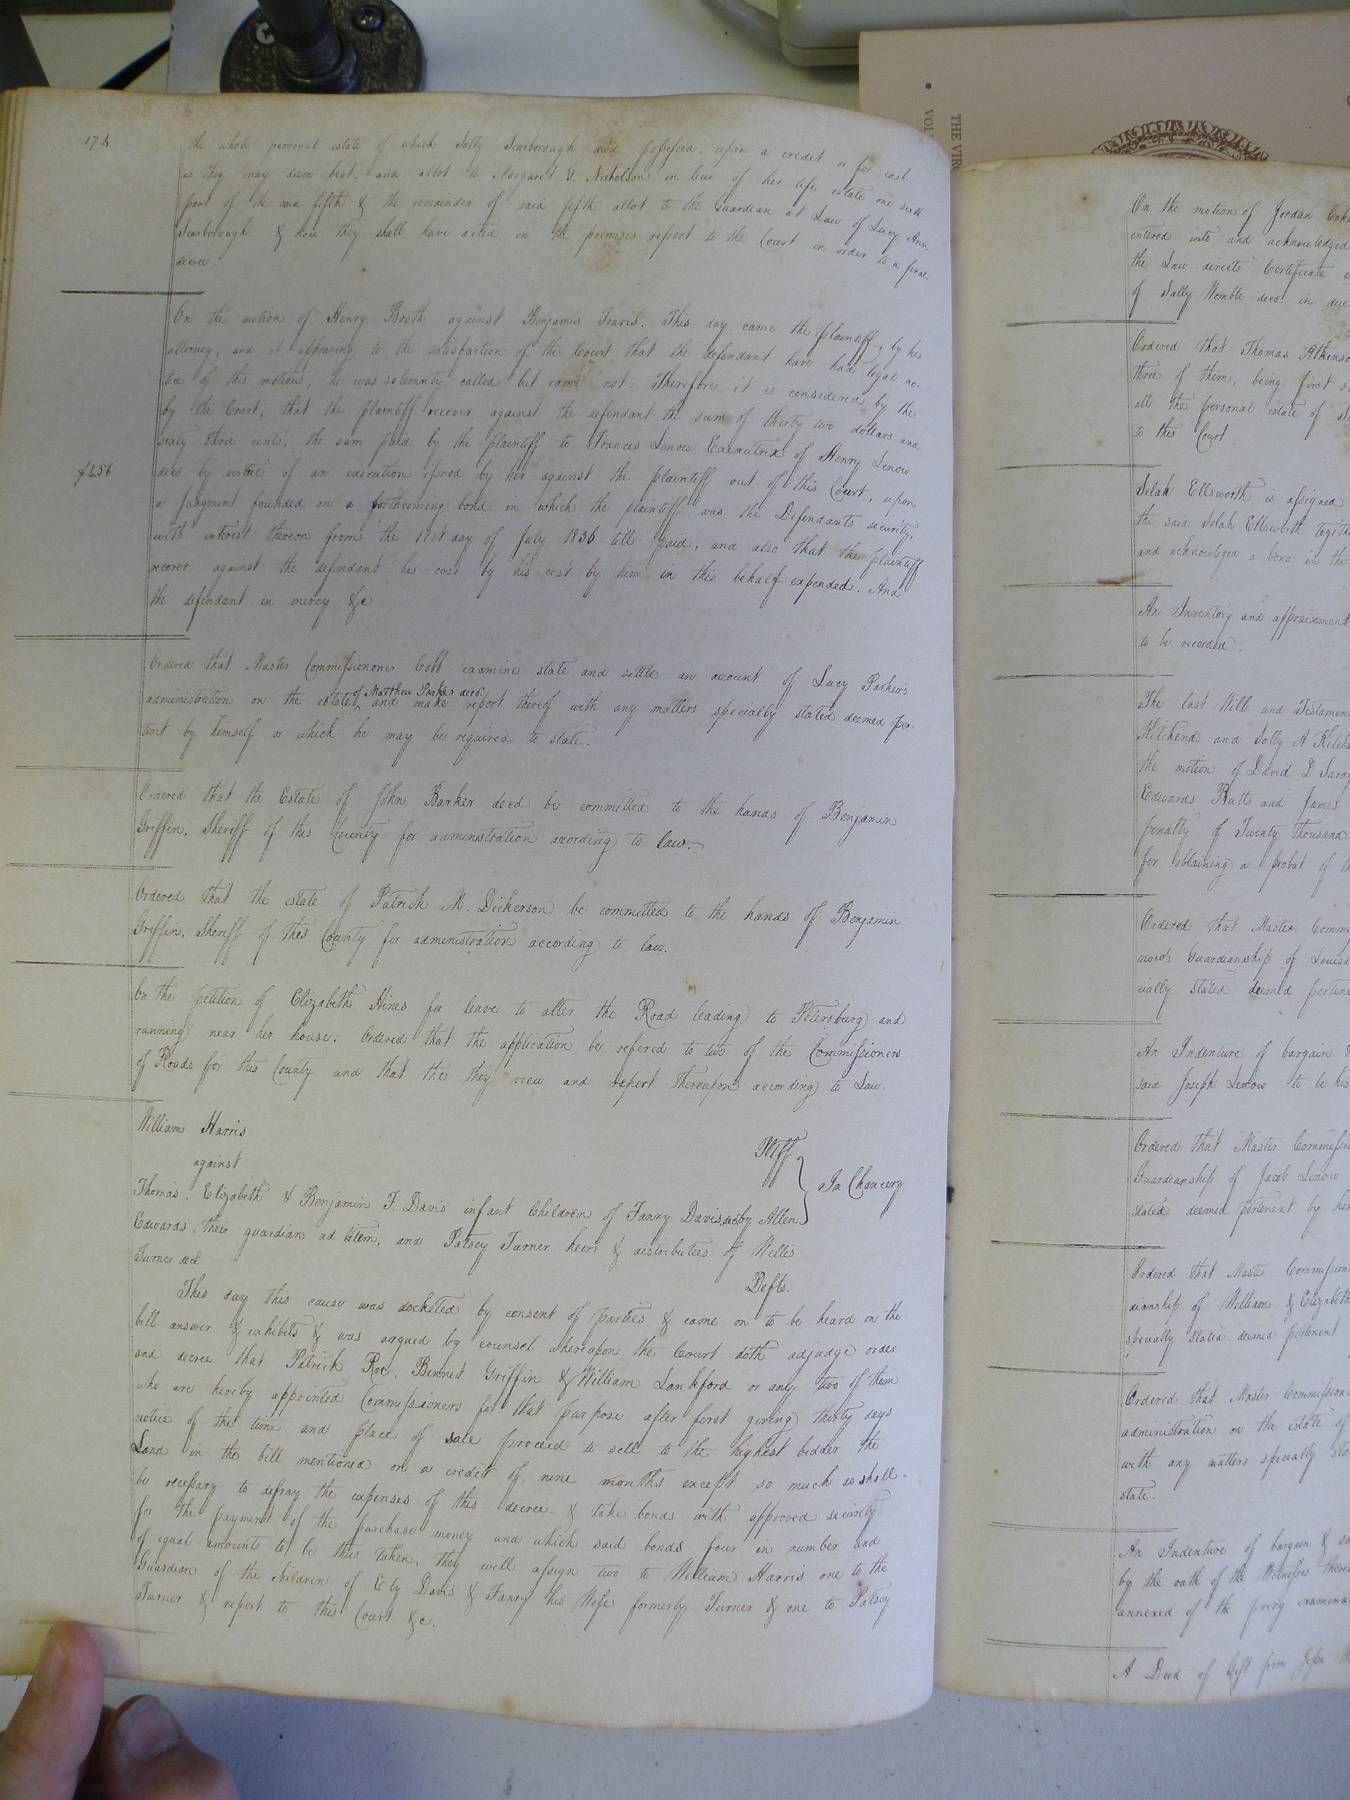 174
the whole personal estate of which Sally Scarborough died possessed, upon a credit or for cash
as they may deem best, and allot to Margaret G. Nicholson in lieu of her life estate one sixth
part of the said fifth & the remainder of said fifth allot to the Guardian at Law of Lucy Ann
Scarborough & how they shall have acted in the premises report to the Court in order to a final
decree.
On the motion of Henry Booth against Benjamin Travis. This day came the plaintiff, by his
attorney, and it appearing to the satisfaction of the Court that the defendant have had legal no-
tice of this motion, he was solemnly called but came not: Therefore it is considered by the
by the Court, that the plaintiff recover against the defendant the sum of thirty two dollars and
sixty three cents, the sum paid by the plaintiff to Frances Lenow Executrix of Henry Lenow
decd by virtue of an execution issued by her against the plaintiff out of this Court, upon
a Judgment founded on a forthcoming bond in which the plaintiff was the Defendants security,
with interest thereon from the 21st day of July 1836 till paid, and also that the plaintiff
recover against the defendant his cost by his cost by him in this behalf expended. And
the defendant in mercy &c
Ordered that Master Commissioner Cobb examine state and settle an account of Lucy Parker's
of Matthew Parker decd.
administration on the estate and make report thereof with any matters specially stated deemed per-
tinent by himself or which he may be required to state.
Ordered that the Estate of John Barker decd be committed to the hands of Benjamin
Griffin, Sheriff of this County for administration according to law.
Ordered that the estate of Patrick M. Dickerson be committed to the hands of Benjamin
Griffin, Sheriff of this County for administration according to law.
On the petition of Elizabeth Hines for leave to alter the Road leading to Petersburg and
running near her house. Ordered that the application be refered to two of the Commissioners
of Roads for this County and that the they view and report thereupon according to Law.
William Harris
Pltff
against
In Chancery
Thomas, Elizabeth & Benjamin F. Davis infant Children of Fanny Davis decd by Allen
Edwards, their guardian ad litem, and Patsey Turner heirs & distributees of Willis
Turner decd
Defts.
This day this cause was docketed by consent of parties & came on to be heard on the
bill answer & exhibits & was argued by counsel whereupon the Court doth adjudge order
and decree that Patrick Roe, Bennet Griffin & William Lankford or any two of them
who are hereby appointed Commissioners for that purpose after first giving thirty days
notice of the time and place of sale proceed to sell to the highest bidder the
Land in the bill mentioned on a credit of nine months except so much as shall
be necessary to defray the expenses of this decree & take bonds with approved security
for the payment of the purchase money and which said bonds four in number and
of equal amounts to be thus taken, they will assign two to William Harris one to the
Guardian of the children of Ely Davis & Fanny his Wife formerly Turner & one to Patsey
Turner & report to this Court &c.
THE VIR
VOL
On the motion of Jordan
entered into and acknowledged
the Law directs Certificate
of Sally Womble decd in due
Ordered that Thomas Atkinson
three of them, being first
all the personal estate of
to this Court
Selah Ellsworth is assigned
the said Selah Ellsworth together
and acknowledged a bond in the
An Inventory and appraisement
to be recorded.
The last Will and Testament
and Sally A
the motion of David D
Edwards Butts and James
penalty of Twenty thousand
for obtaining a probat of
Ordered that Master
Guardianship of Louisa
cially stated deemed
An Indenture of bargain &
said Joseph Lenow to be his
Ordered that Master
Guardianship of Jacob Lenow
stated deemed pertinent by
Ordered that Master
dianship of William & Elizabeth
specially stated deemed pertinent
Ordered that Master
administration on the estate of
with any matters specially
state.
An Indenture of bargain &
by the oath of the Witnesses
annexed of the privy
A Deed of Gift from